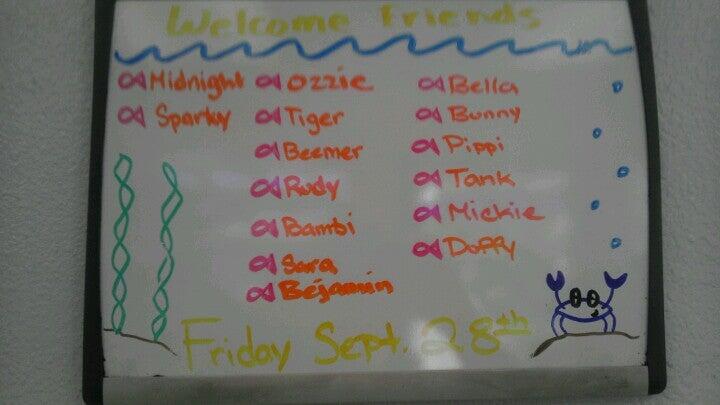 Welcome Friends
Midnight
Sparky
Ozzie
Tiger
Beemer
Rudy
Bambi
Sara
Bejamin
Bella
Bunny
Pippi
Tank
Mickie
Daffy
Friday Sept. 28th